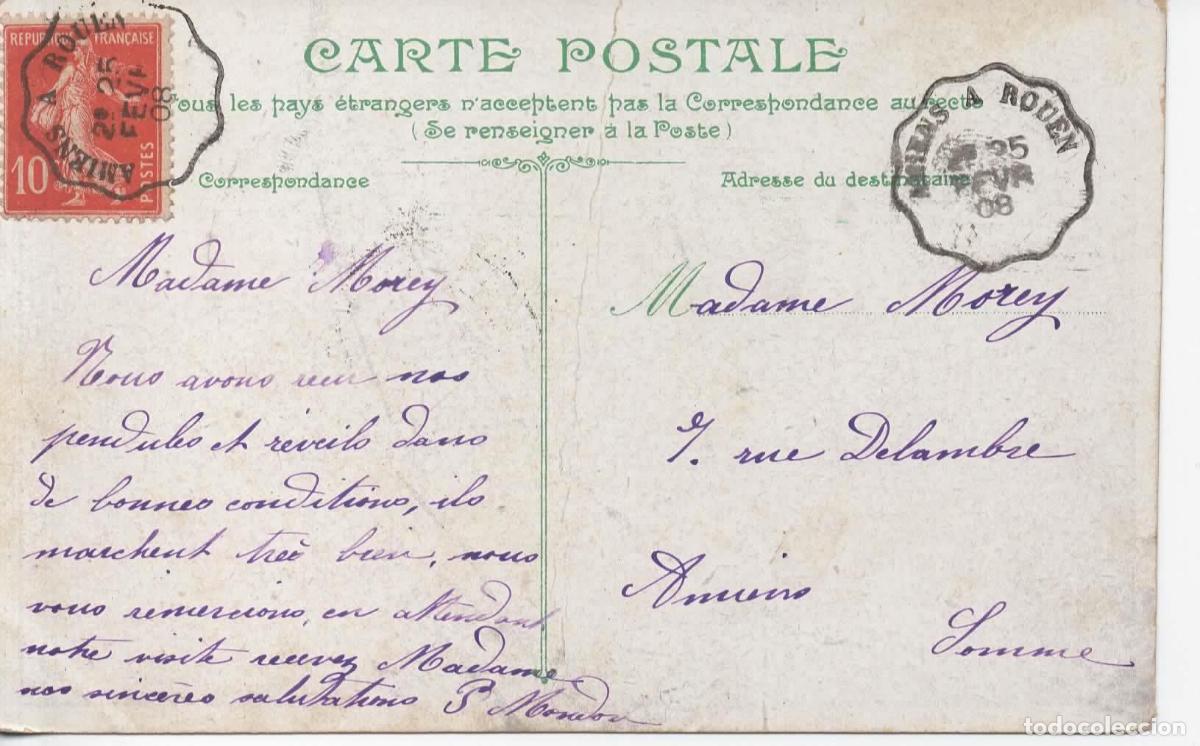 REPUBLIQUE FRANÇAISE
10
POSTES
AMIENS A ROUEN
2º 25
FEVR
08
CARTE POSTALE
Tous les pays étrangers n'acceptent pas la Correspondance au recto
(Se renseigner à la Poste)
Correspondance
Madame Morey
Nous avons reçu nos
pendules et réveils dans
de bonnes conditions, ils
marchent très bien, nous
vous remercions, en attendant
notre visite recevez Madame
nos sincères salutations P Mondon
Adresse du destinataire
AMIENS A ROUEN
25
FEVR
08
Madame Morey
7. rue Delambre
Amiens
Somme
todocoleccion